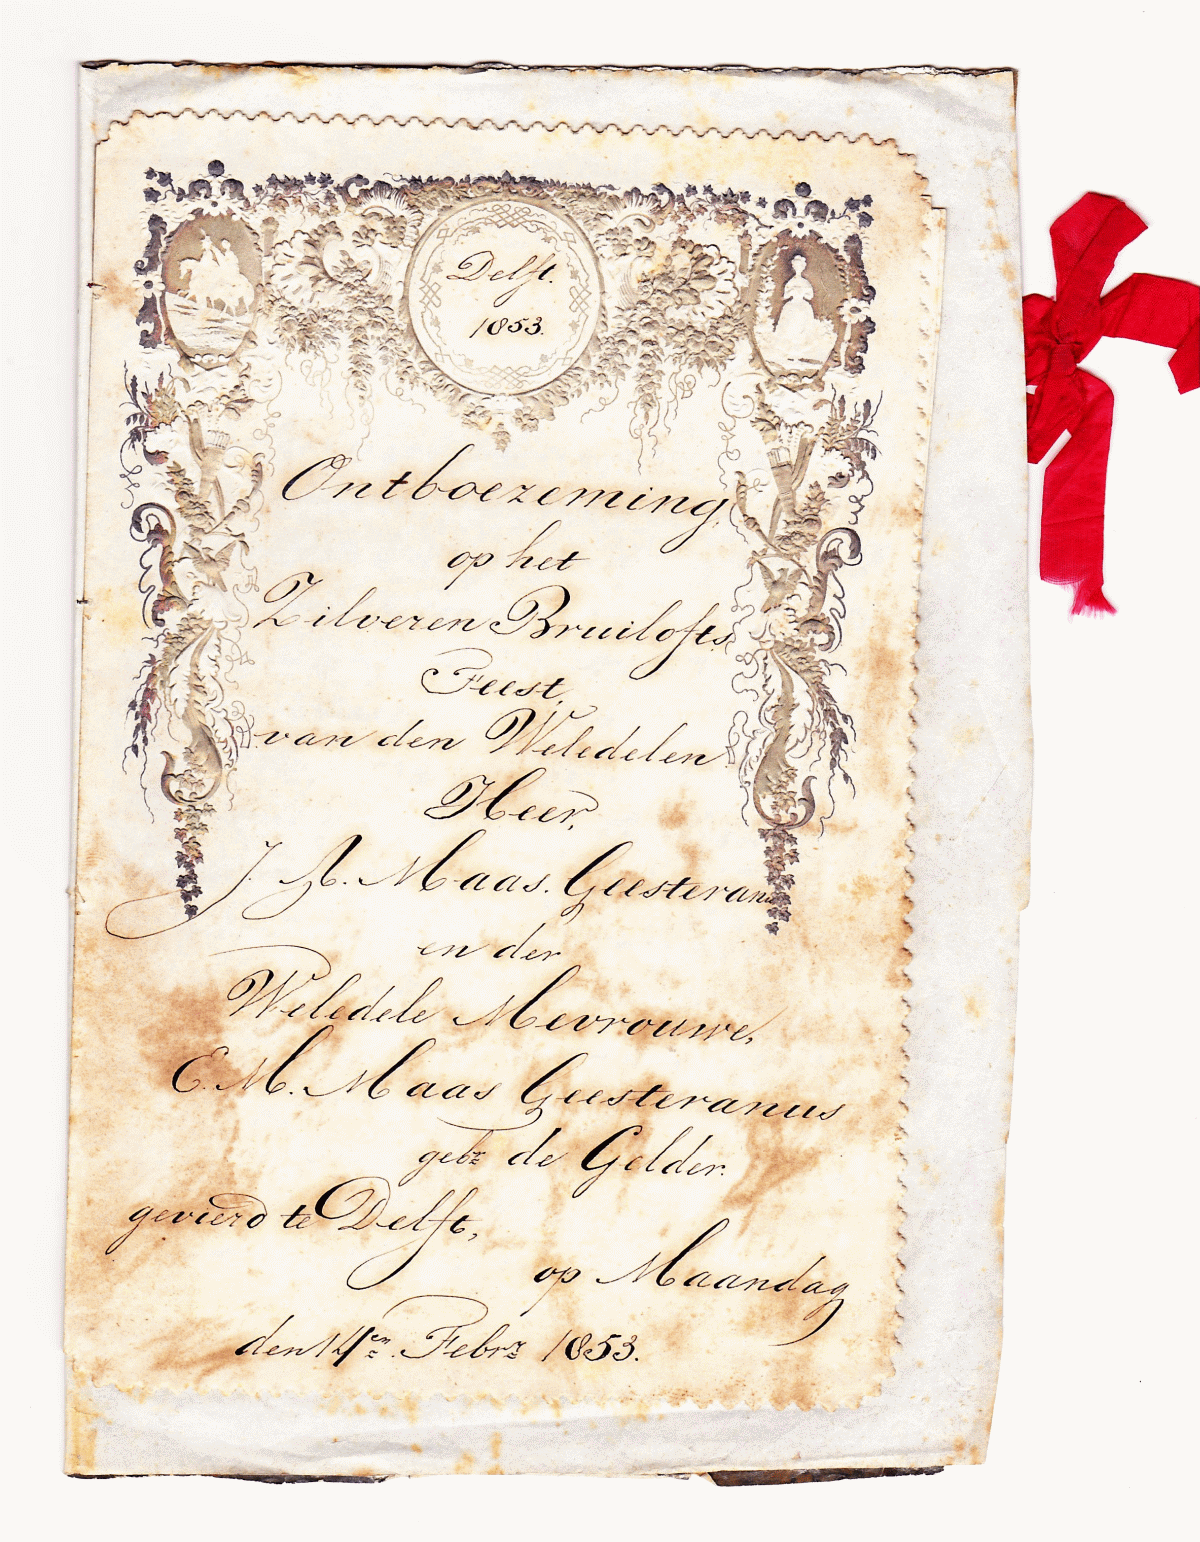 Delft.
1853.
Ontboezeming,
op het
Zilveren Bruilofts
Feest,
van den Weledelen
Heer,
J. A. Maas. Geesteranus
en der
Weledele Mevrouwe,
E. M. Maas Geesteranus
gebr de Gelder.
gevierd te Delft,
op Maandag
den 14en. Febr 1853.